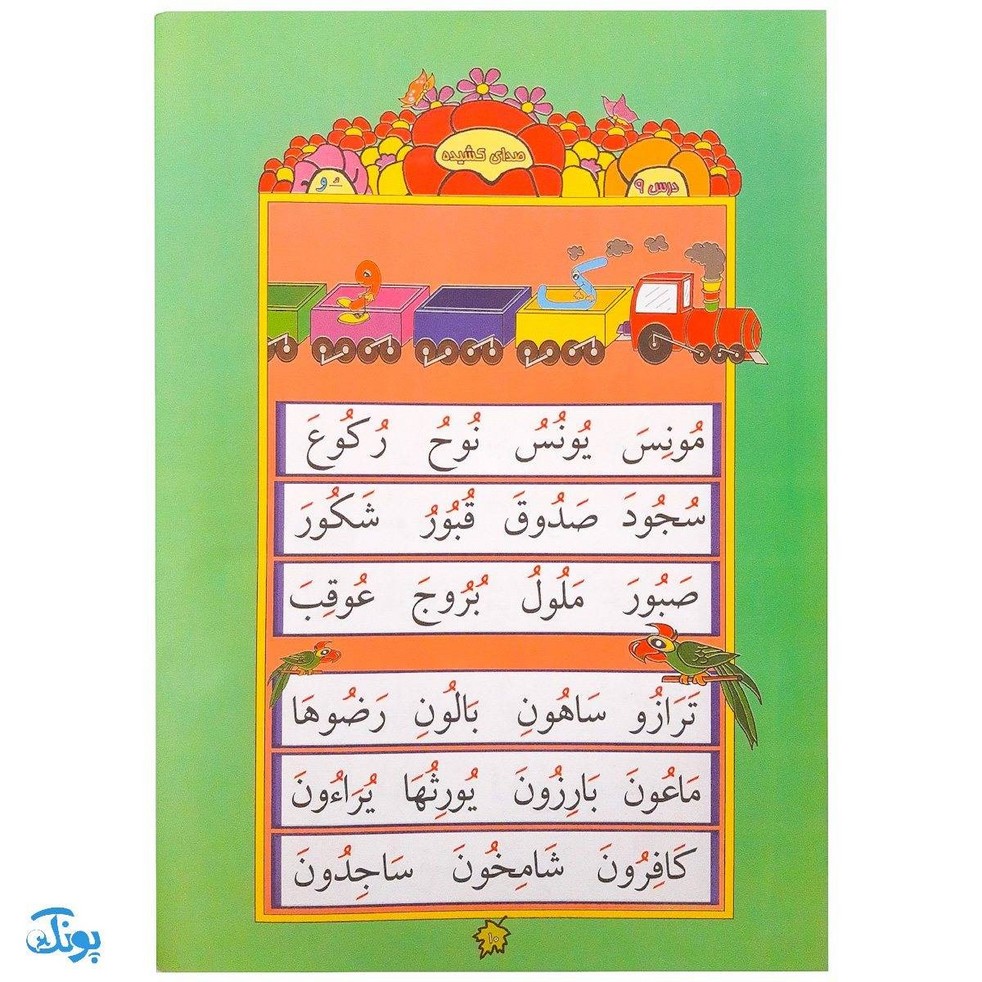 صدای کشیده
درس ۹
ـُ و
ـُ و
مُونِسَ یُونُسُ نُوحُ رُکُوعَ
سُجُودَ صَدُوقَ قُبُورُ شَکُورَ
صَبُورَ مَلُولُ بُرُوجَ عُوقِبَ
تَرَازُو سَاهُونِ بَالُونِ رَضُوهَا
مَاعُونَ بَارِزُونَ یُورِثُهَا یُرَاءُونَ
کَافِرُونَ شَامِخُونَ سَاجِدُونَ
۱۰
پونک